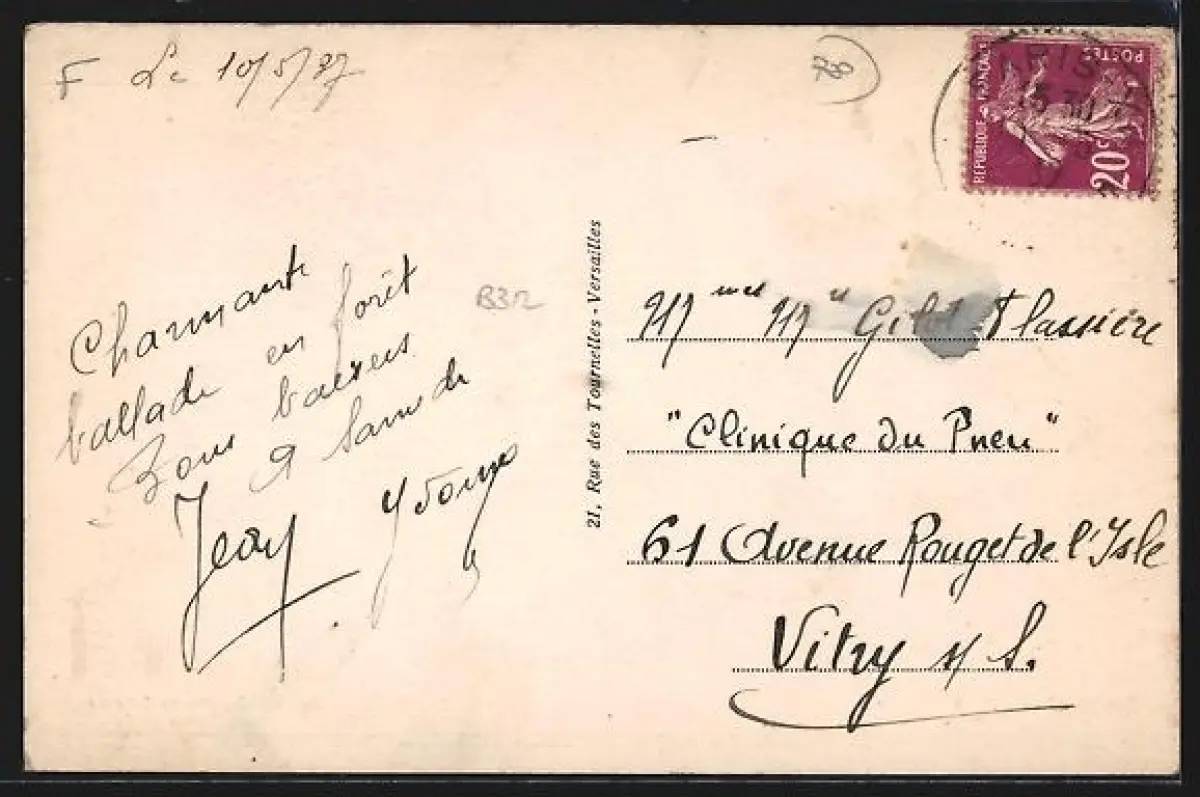 F Le 10/5/37
78
REPUBLIQUE FRANÇAISE
POSTES
20c
PARIS
15 30
Charmante
ballade en forêt
Bons baisers
A Samedi
Jean Yvonne
B312
21, Rue des Tournelles - Versailles
Mmes Mr Plassière
"Clinique du Pneu"
61 Avenue Rouget de l'Isle
Vitry s/ S.